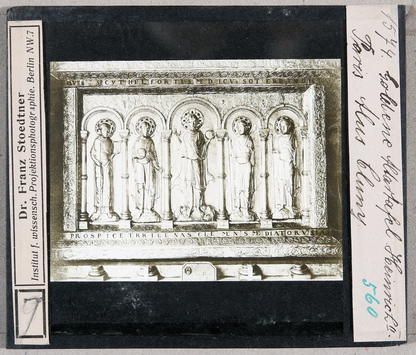 Dr. Franz Stoedtner
Institut f. wissensch. Projektionsphotographie. Berlin NW.7
7
QVIS SICVT HEL FORTIS MEDICVS SOTER
PROSPICE TERRIGENAS CLEMENS MEDIATOR VSIAS
1574. Goldene Altartafel Heinrichs II.
Paris Mus Cluny
560